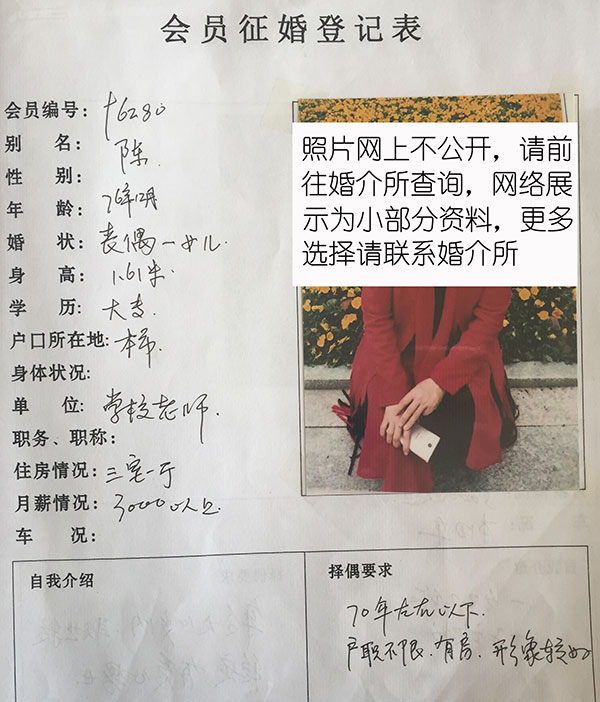 会员征婚登记表
会员编号： t6280
别 名： 陈.
性 别：
年 龄： 76年12月
婚 状： 丧偶一女儿.
身 高： 1.61米.
学 历： 大专.
户口所在地： 本市.
身体状况：
单 位： 学校老师.
职务、职称：
住房情况： 三室一厅
月薪情况： 3000以上
车 况：
照片网上不公开，请前
往婚介所查询，网络展
示为小部分资料，更多
选择请联系婚介所
自我介绍
择偶要求
70年左右以下.
户职不限.有房.形象较好